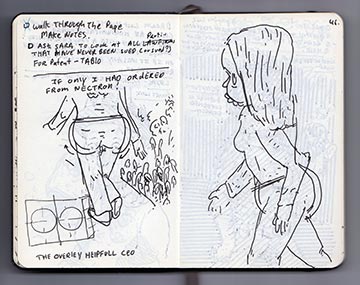 WALK THROUGH THE PAGE
MAKE NOTES.
ASK SARA TO LOOK AT ALL
THAT HAVE NEVER BEEN SUED
FOR PATENT - TABLO
IF ONLY I HAD ORDERED
FROM NECTROM!
THE OVERLEY HELPFULL CEO
46.